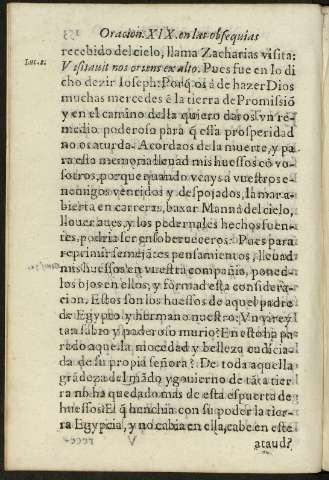 Oracion. XIX. en las obsequias
recebido del cielo, llama Zacharias visita:
Luc. 1.
Visitauit nos oriens ex alto. Pues fue en lo di
cho dezir Ioseph: Porq̃ os á de hazer Dios
muchas mercedes ẽ la tierra de Promissiõ
y en el camino della quiero daros vn re-
medio poderoso para q̃ essa prosperidad
no os aturda. Acordaos de la muerte, y pa
ra essa memoria leuad mis huessos cõ vo-
sotros, porque quando veays a vuestros e-
nemigos vencidos y despojados, la mar a-
bierta en carreras, baxar Manná del cielo,
llouer aues, y los pedernales hechos fuen-
tes, podria ser ensoberueceros. Pues para
reprimir semejãtes pensamientos, lleuad
mis huessos en vuestra compañia, poned
los ojos en ellos, y formad esta considera-
cion. Estos son los huessos de aquel padre
de Egypto y hermano nuestro: Vn varõ y
tan sabio y poderoso murio? En esto ha pa
rado aquella mocedad y belleza cudicia-
da de su propia señora? De toda aquella
grãdeza del mãdo y gouierno de tãta tier
ra no ha quedado mas de esta espuerta de
huessos? El q̃ henchia con su poder la tier-
ra Egypcia, y no cabia en ella, cabe en este
ataud?